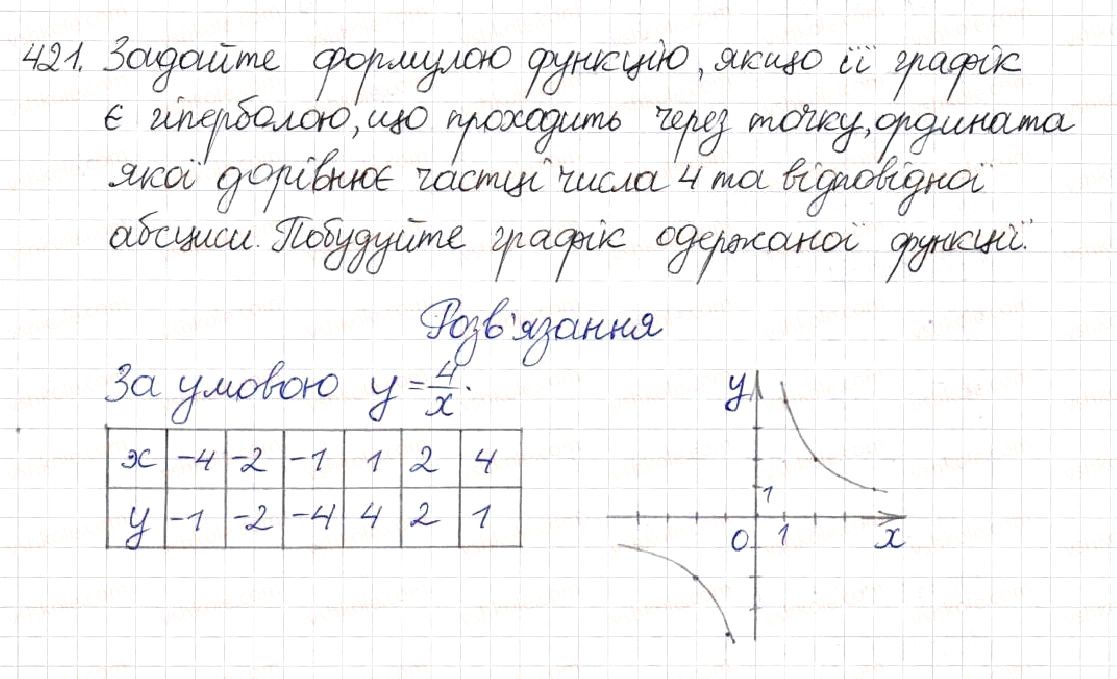 421. Задайте формулою функцію, якщо її графік
є гіперболою, що проходить через точку, ордината
якої дорівнює частці числа 4 та відповідної
абсциси. Побудуйте графік одержаної функції.
Розв'язання
За умовою y = 4/x.
x -4 -2 -1 1 2 4
y -1 -2 -4 4 2 1
y
1
0 1 x